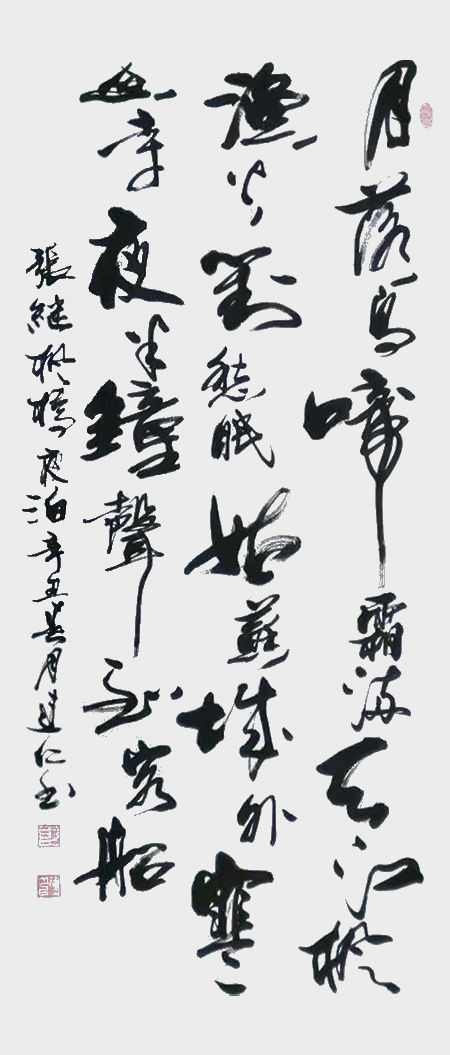 月落烏啼霜滿天江楓
漁火對愁眠姑蘇城外寒
山寺夜半鐘聲到客船
張继楓橋夜泊辛丑月建仁书